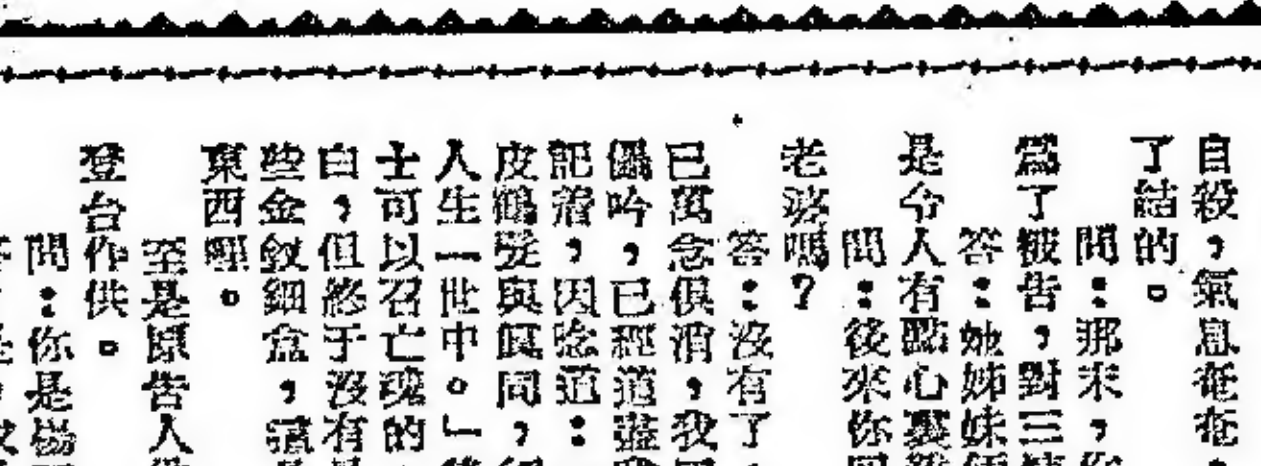 自殺，氣息奄奄，
了結的。
問：那末，你
爲了被告，對三
答：她姊妹
是令人有點心裏
問：後來你
老婆嗎？
答：沒有了
已萬念俱消，我
傀儡吟，已經道盡
記着，因念道：
皮鶴髮與眞同，
人生一世中。」
士可以召亡魂的
白，但終于沒有
些金釵細盒，
東西哩。
至是原告人
登台作供。
問：你是楊